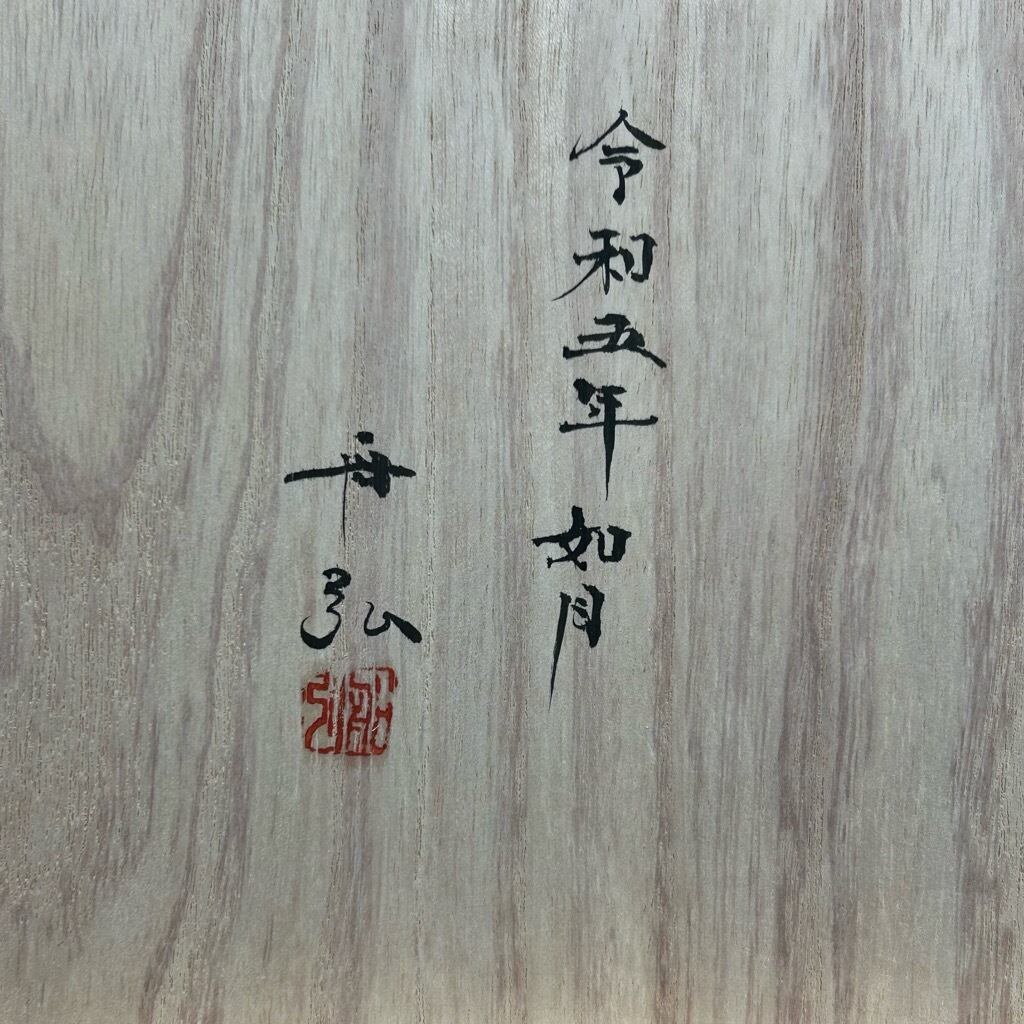 令和五年 如月
舟弘